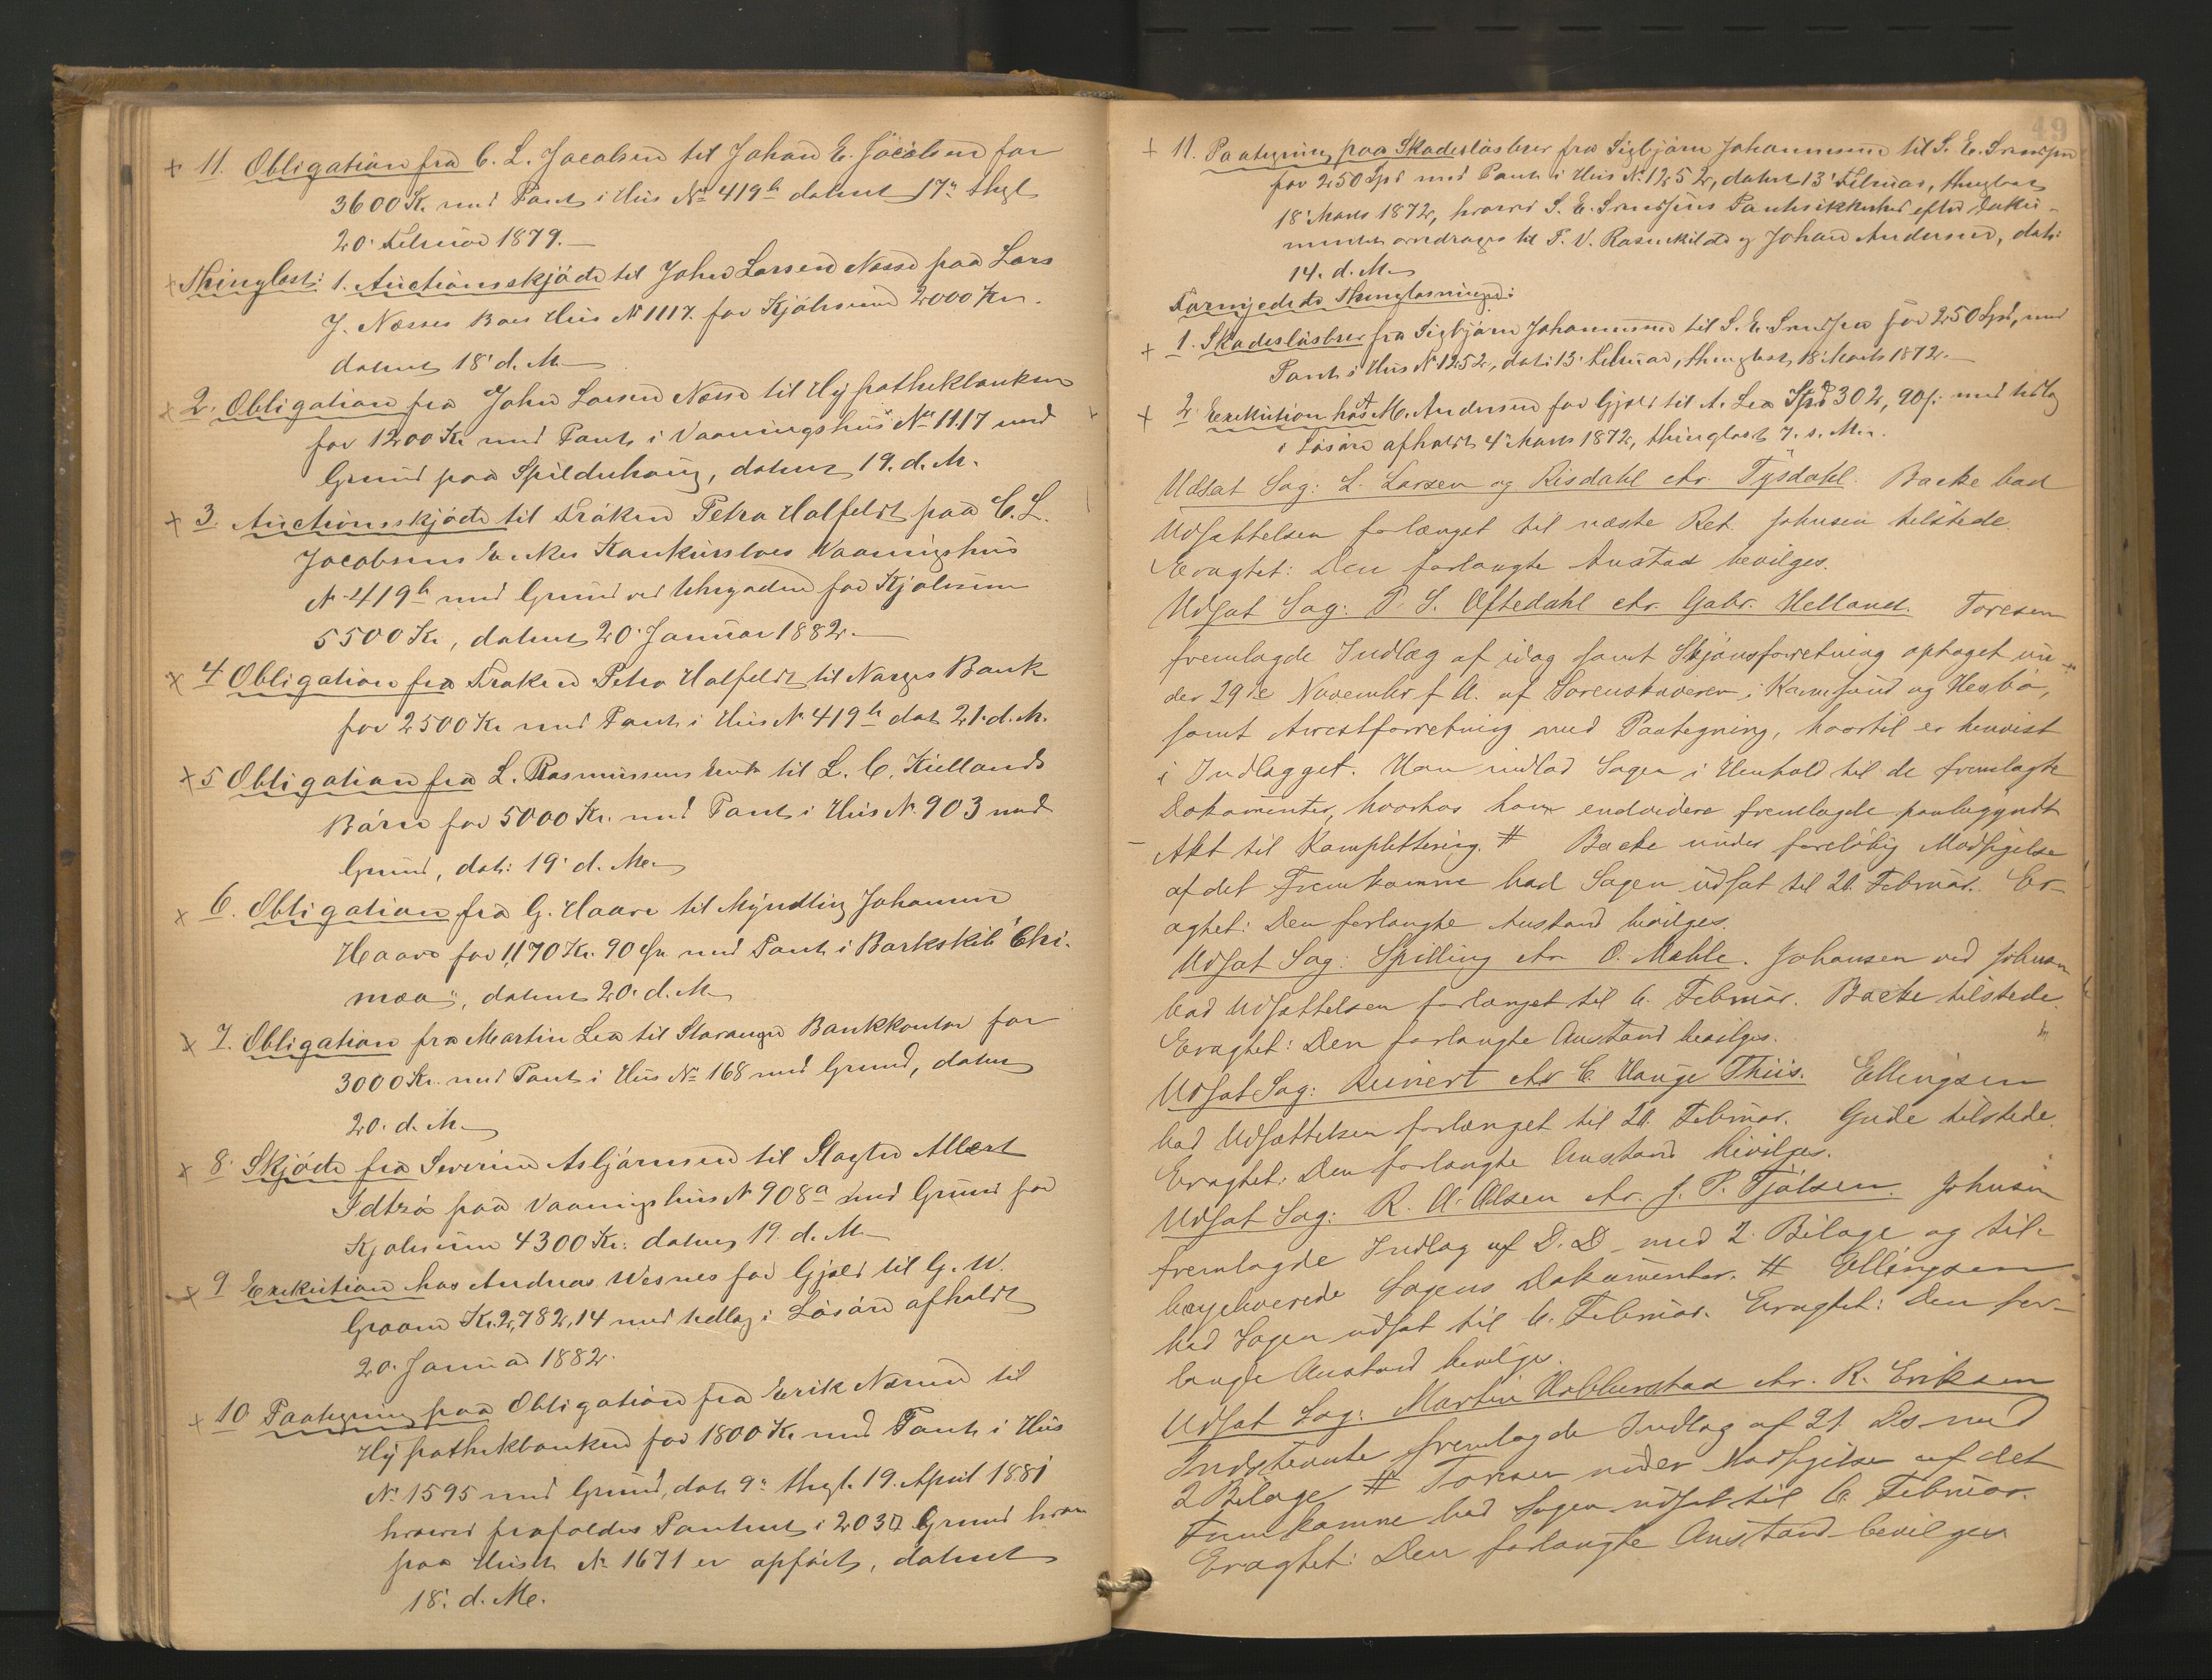 + 11. Obligation fra C. L. Jacobsen til Johan E. Jacobsen for
3600 Kr. med Pant i Hus No 419b datert 17de thgl
20. Februar 1879.
+ Thinglæst: 1. Auctionsskjøde til John Larsen Næsse paa Lars
J. Næsses Boes Hus No 1117. for Kjøbesum 2000 Kr.
datert 18' d. M.
+ 2. Obligation fra John Larsen Næsse til Hypothekbanken
for 1200 Kr med Pant i Vaaningshus No 1117 med
Grund paa Spilderhaug, datert 19. d. M.
+ 3. Auctionsskjøde til Frøken Petra Halfeldt paa C. L.
Jacobsens Enkes Konkursboes Vaaningshus
No 419b med Grund ved for Kjøbesum
5500 Kr, datert 20. Januar 1882.
+ 4 Obligation fra Frøken Petra Halfeldt til Norges Bank
for 2500 Kr med Pant i Hus No 419b dat 21. d. M.
+ 5 Obligation fra L. Rasmussens Enke til L. C. Kiellands
Børn for 5000 Kr. med Pant i Hus No 903 med
Grund, dat: 19' d. M.
+ 6. Obligation fra G. Haave til Myndling Johanne
Haave for 1,170 Kr. 90 Øre med Pant i Barkskib "Chi-
mæa", datert 20. d. M.
+ 7. Obligation fra Martin Lea til Stavanger Bankkontor for
3000 Kr. med Pant i Hus No 168 med Grund, datert
20. d. M.
+ 8. Skjøde fra Severine Asbjørnsen til Slagter Albert
Idtzø paa Vaaningshus No 908a med Grund for
Kjøbesum 4300 Kr. datert 19. d. M.
+ 9 Exekution hos Andreas Wesnes for Gjæld til G. W.
Kr. 2,782,14 med Udlæg i Løsøre afholdt
20. Januar 1882.
+ 10 Paategning paa Obligation fra Eerik til
Hypothekbanken for 1800 Kr med Pant i Hus
No 1595 med Grund, dat. 9de thgl. 19. April 1881
hvorved frafaldes Panteret i 203 □ Grund hvor
paa Huset No 1671 er opført, datert
18. d. M.
49
+ 11. Paategning paa Skadesløsbrev fra Sigbjørn Johannesen til S. E. Svendsen
for 250 Spd med Pant i Hus No 1252, datert 13' Februar, thinglæst
18' Marts 1872, hvorved S. E. Svendsens Pantesikkerhed efter Doku-
mentet overdrages til P. V. Rosenkilde og Johan Andersen, dat:
14. d. M.
Fornyede Thinglæsninger:
+ 1. Skadesløsbrev fra Sigbjørn Johannesen til S. E. Svendsen for 250 Spd, med
Pant i Hus No 1252, dat: 13' Februar, thinglæst 18' Marts 1872.
+ 2. Exekution hos M. Andersen for Gjæld til A. Lea Spd 302, 90 s. med Udlæg
i Løsøre afholdt 4' Marts 1872, thinglæst 7. s. M.
Udsat Sag: L. Larsen og Risdahl ctr. Tysdahl. Backe bad
Udsættelsen forlænget til næste Ret. Johnsen tilstede.
Eragtet: Den forlangte Anstand bevilges.
Udsat Sag: P. S. Oftedahl ctr. Gabr. Helland. Toresen
fremlagde Indlæg af idag samt Skjønsforretning optaget un-
der 29de November f. A. af Sorenskriveren i Karmsund og Hesbø,
samt Arrestforretning med Paategning, hvortil er henvist
i Indlægget. Han indlod Sagen i Henhold til de fremlagte
Dokumenter, hvorhos han endvidere fremlagde paabegyndt
Akt til Komplettering. # Backe under foreløbig Modsigelse
af det Fremkomne bad Sagen udsat til 20. Februar. Er-
agtet: Den forlangte Anstand bevilges.
Udsat Sag: Spilling ctr. O. Mehle. Johansen ved Johnsen
bad Udsættelsen forlænget til 6. Februar. Backe tilstede.
Eragtet: Den forlangte Anstand bevilges.
Udsat Sag: Reinert ctr C. Hauge Thiis. Ellingsen
bad Udsættelsen forlænget til 20. Februar. Gude tilstede.
Eragtet: Den forlangte Anstand bevilges.
Udsat Sag: R. A. Olsen ctr. J. P. Fjølsen. Johnsen
fremlagde Indlæg af D. D. med 2 Bilage og til-
bageleverede Sagens Dokumenter. # Ellingsen
bad Sagen udsat til 6. Februar. Eragtet: Den for-
langte Anstand bevilges.
Udsat Sag: Martin Hobberstad ctr. R. Eriksen
Indstevnte fremlagde Indlæg af 21. Ds med
2 Bilage # Toresen under Modsigelse af det
Fremkomne bad Sagen udsat til 6. Februar.
Eragtet: Den forlangte Anstand bevilges